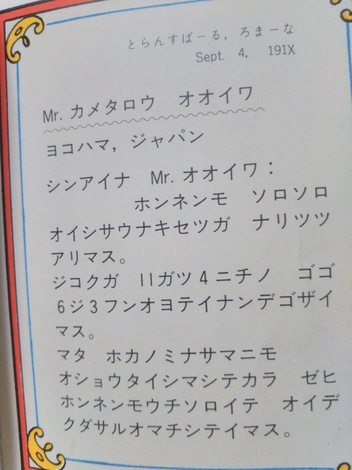 とらんすばーる，ろまーな
Sept. 4, 191X
Mr. カメタロウ　オオイワ
ヨコハマ，ジャパン
シンアイナ　Mr. オオイワ：
ホンネンモ　ソロソロ
オイシサウナキセツガ　ナリツツ
アリマス。
ジコクガ　11ガツ4ニチノ　ゴゴ
6ジ3フンオヨテイナンデゴザイ
マス。
マタ　ホカノミナサマニモ
オショウタイシマシテカラ　ゼヒ
ホンネンモウチソロイテ　オイデ
クダサルオマチシテイマス。